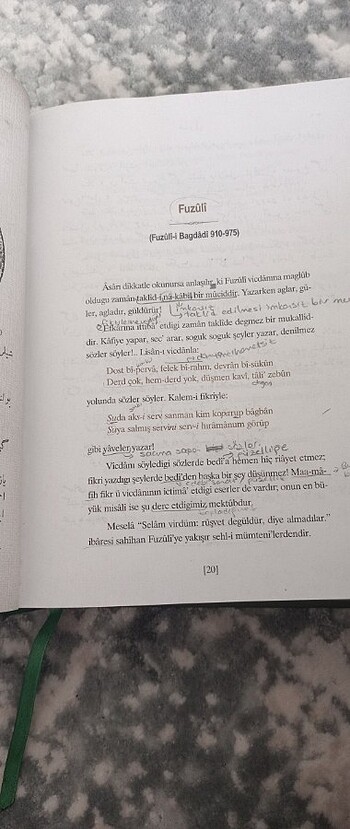 Fuzûlî
(Fuzûlî-i Bagdâdî 910-975)
Âsârı dikkatle okunursa anlaşılır ki Fuzûlî vicdânına maglûb
oldugu zamân taklîd-i nâ-kābil bir mûciddir. Yazarken aglar, gü-
ler, agladır, güldürür!
taklid edilmesi imkansız bir
Efkârına ittibâ' etdigi zamân taklîde degmez bir mukallid-
dir. Kâfiye yapar, sec' arar, soguk soguk şeyler yazar, denilmez
sözler söyler!.. Lisân-ı vicdânla:
Dost bî-pervâ, felek bî-rahm, devrân bî-sükûn
Derd çok, hem-derd yok, düşmen kavî, tâli' zebûn
yolunda sözler söyler. Kalem-i fikriyle:
Suda aks-i serv sanman kim koparup bâgbân
Suya salmış servini serv-i hırâmânım görüp
gibi yâveler yazar!
saçma sapan sözler
güzelliğe
Vicdâm söyledigi sözlerde bedî'a hemen hiç riâyet etmez;
fikri yazdıgı şeylerde bedî'den başka bir şey düşünmez! Maa-mâ-
fih fikr ü vicdânının ictimâ' etdigi eserler de vardır; onun en bü-
yük misâli ise şu derc etdigimiz mektûbdur.
Meselâ "Selâm virdüm: rüşvet degüldür, diye almadılar."
ibâresi sahîhan Fuzûlî'ye yakışır sehl-i mümteni'lerdendir.
[20]